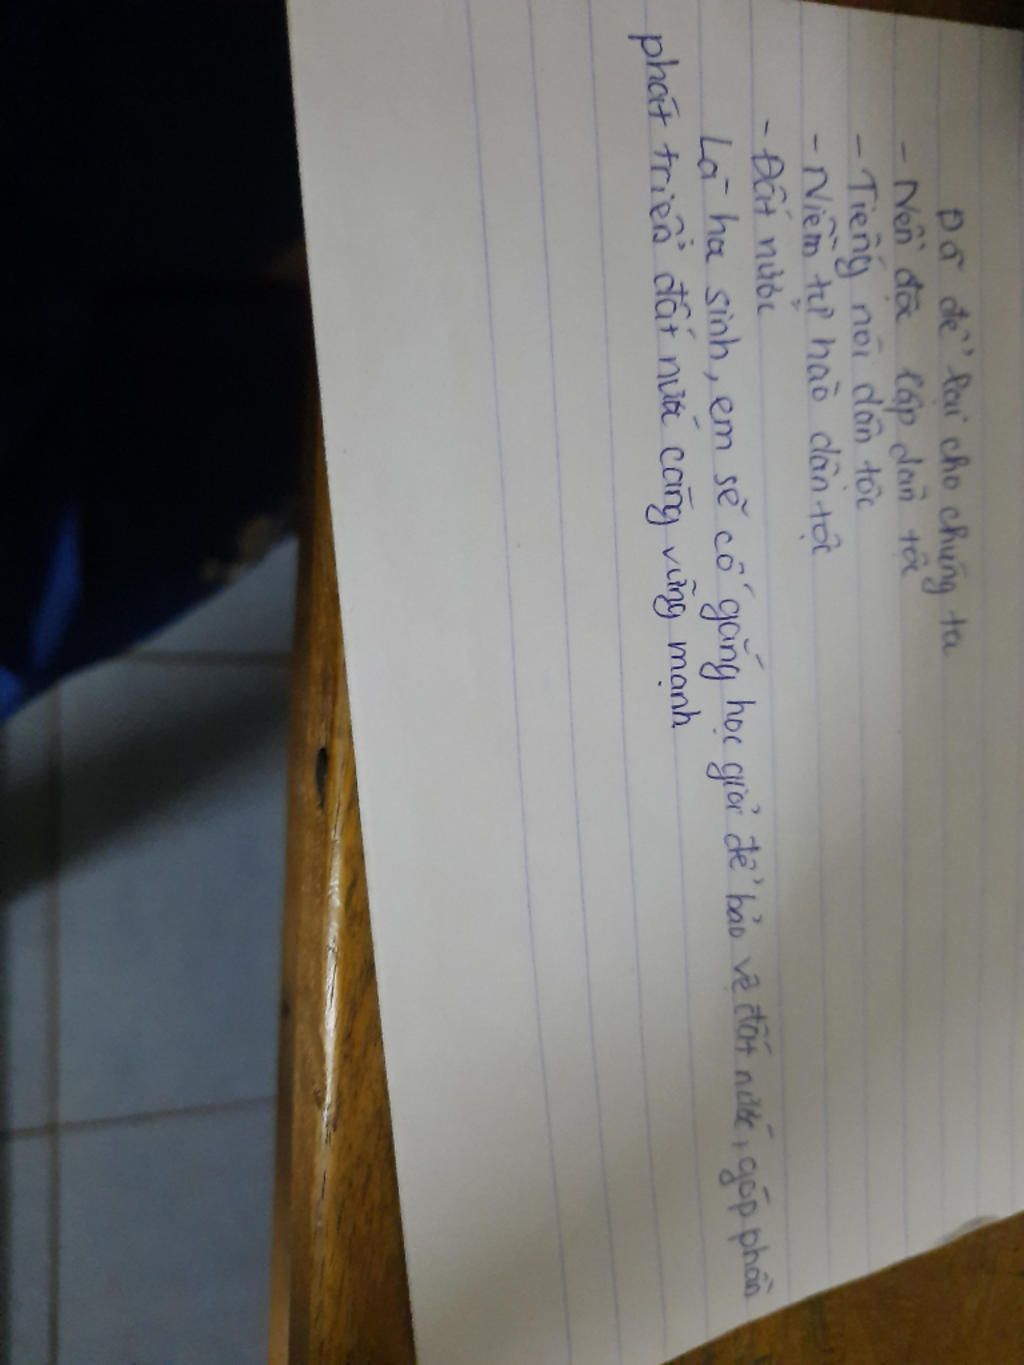 Đã để lại cho chúng ta
- Nền độc lập dân tộc
- Tiếng nói dân tộc
- Niềm tự hào dân tộc
- Đất nước
Là hs sinh, em sẽ cố gắng học giỏi để bảo vệ đất nước, góp phần
phát triển đất nước càng vững mạnh